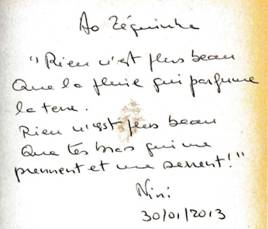 Ao Zéquinha
"Rien n'est plus beau
Que la pluie qui parfume
la terre.
Rien n'est plus beau
Que tes bras qui me
prennent et me serrent!"
Nini
30/01/2013